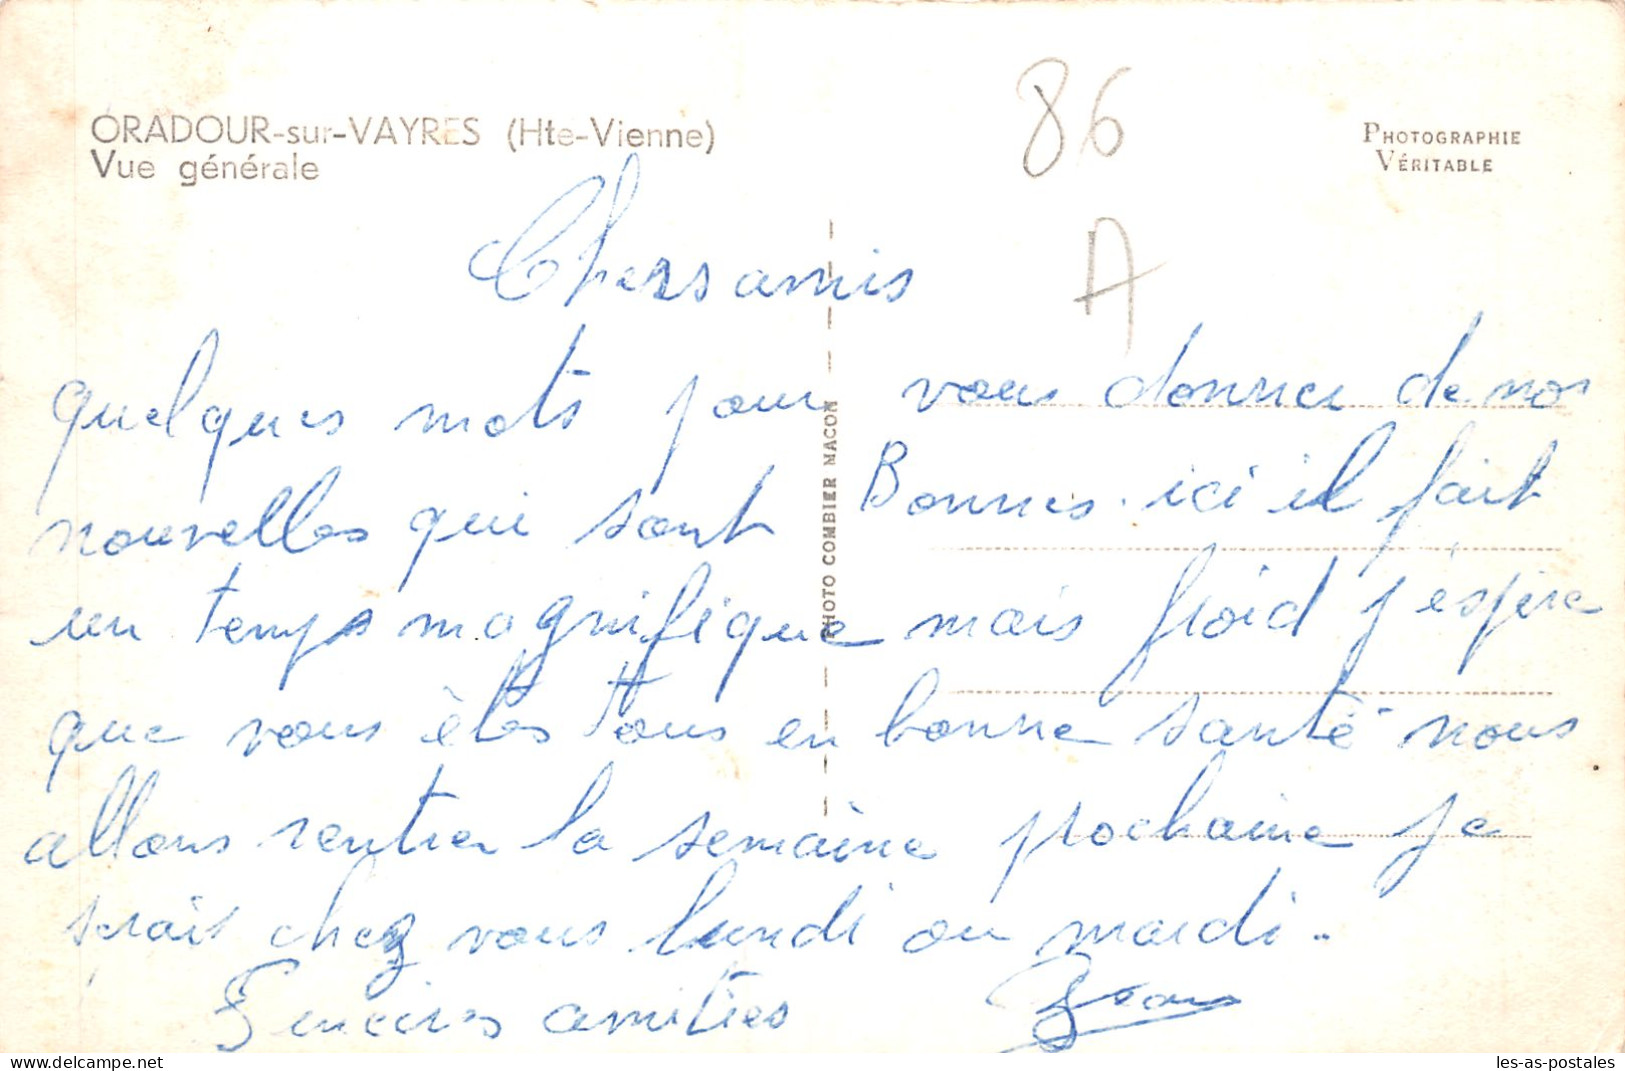 ORADOUR-sur-VAYRES (Hte-Vienne)
Vue générale
86
PHOTOGRAPHIE
VÉRITABLE
A
Chers amis
quelques mots pour vous donner de nos
nouvelles qui sont Bonnes. ici il fait
un temps magnifique mais froid j'éspère
que vous êtes tous en bonne santé nous
allons rentrer la semaine prochaine je
serais chez vous lundi ou mardi..
Sincères amitiés
Jean
PHOTO COMBIER MACON
Delcampe.net
les-as-postales